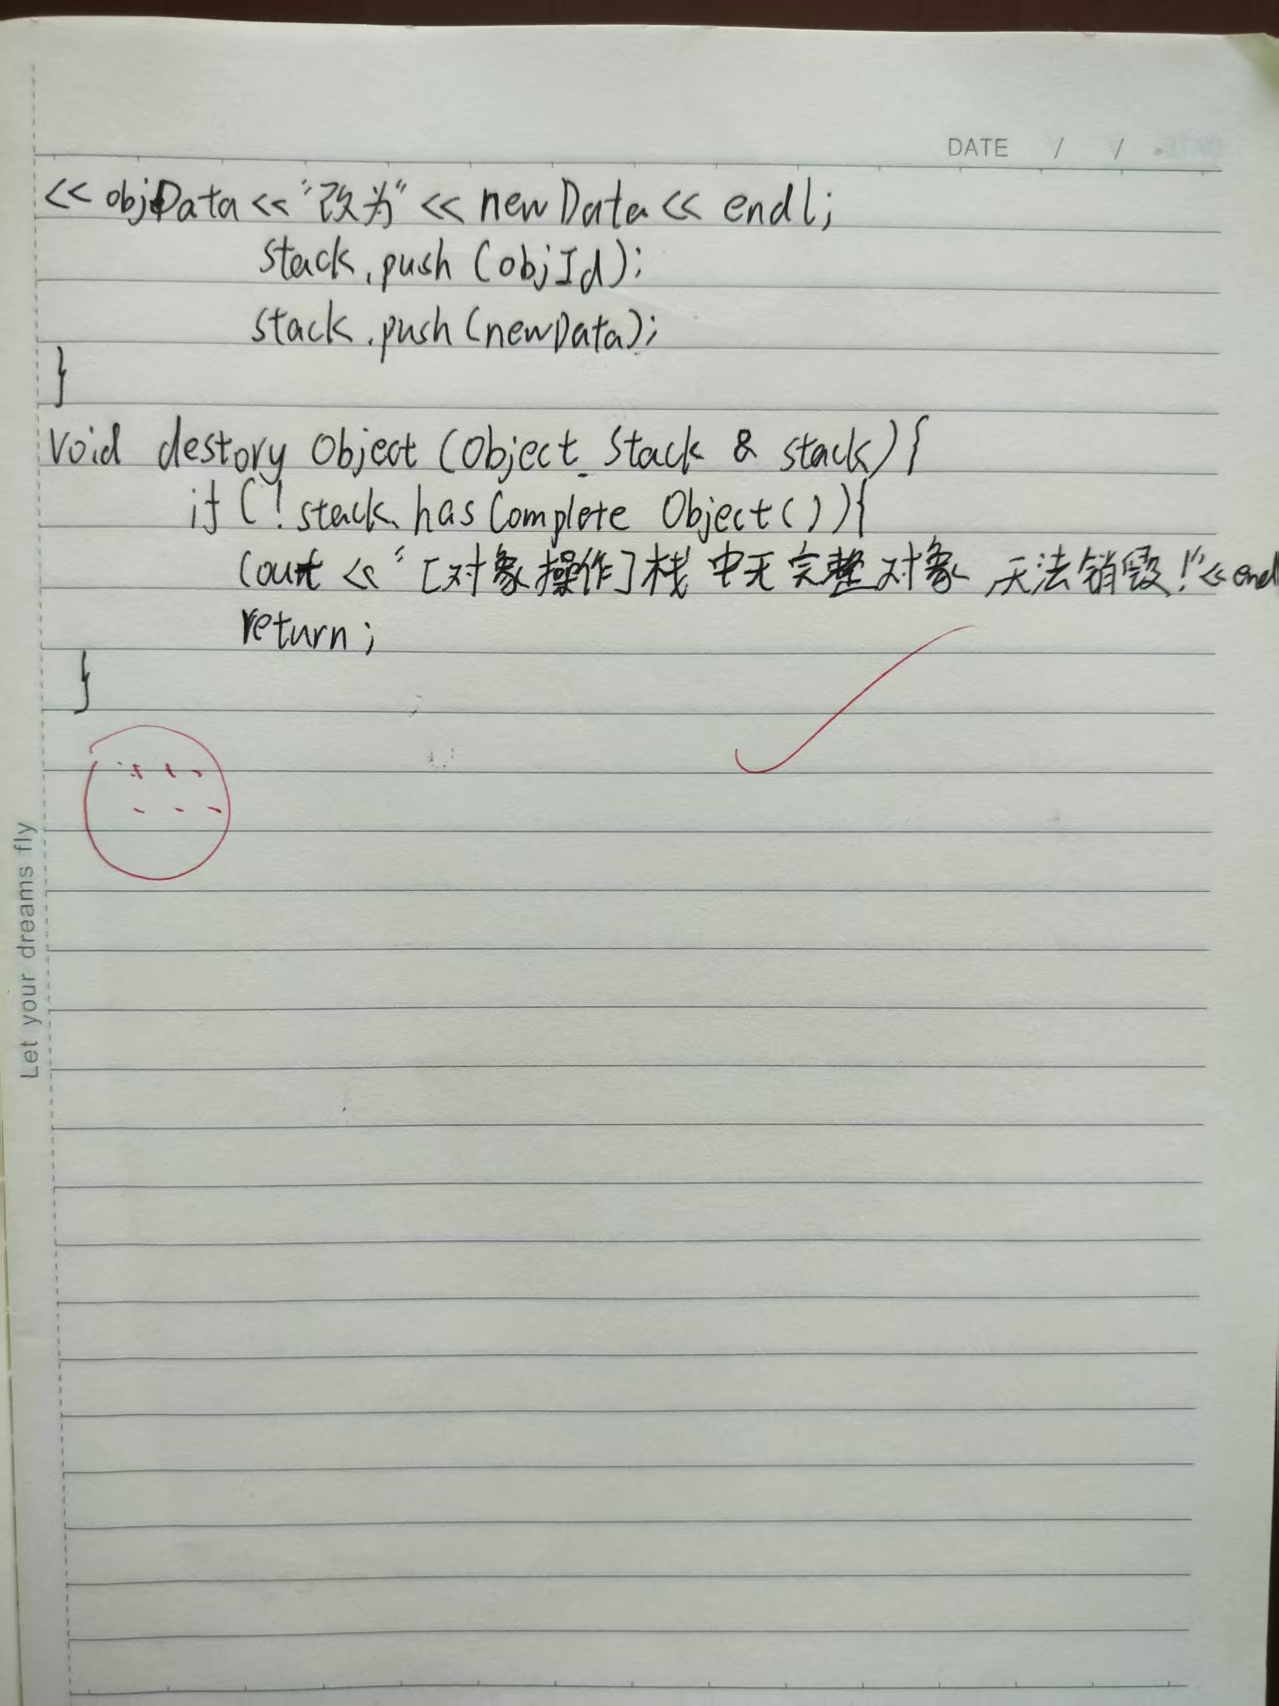 DATE / /
<< objData << "改为" << newData << endl;
stack.push (objId);
stack.push (newData);
}
void destory Object (Object Stack & stack) {
if (! stack.has Complete Object ( ) ) {
Cout << "[对象操作]栈中无完整对象 无法销毁!" << end
return ;
}
Let your dreams fly